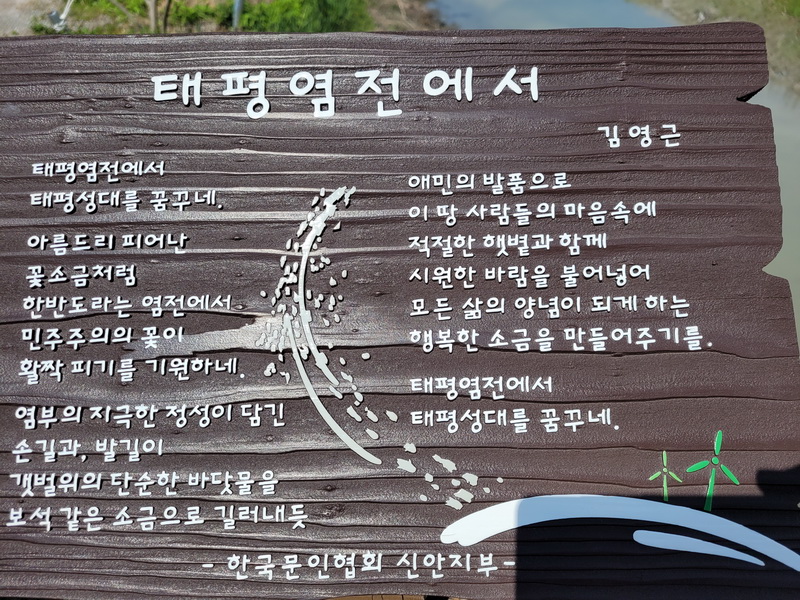 태평염전에서
김영근
태평염전에서
태평성대를 꿈꾸네.
아름드리 피어난
꽃소금처럼
한반도라는 염전에서
민주주의의 꽃이
활짝 피기를 기원하네.
염부의 지극한 정성이 담긴
손길과, 발길이
갯벌위의 단순한 바닷물을
보석 같은 소금으로 길러내듯
애민의 발품으로
이 땅 사람들의 마음속에
적절한 햇볕과 함께
시원한 바람을 불어넣어
모든 삶의 양념이 되게 하는
행복한 소금을 만들어주기를.
태평염전에서
태평성대를 꿈꾸네.
- 한국문인협회 신안지부 -